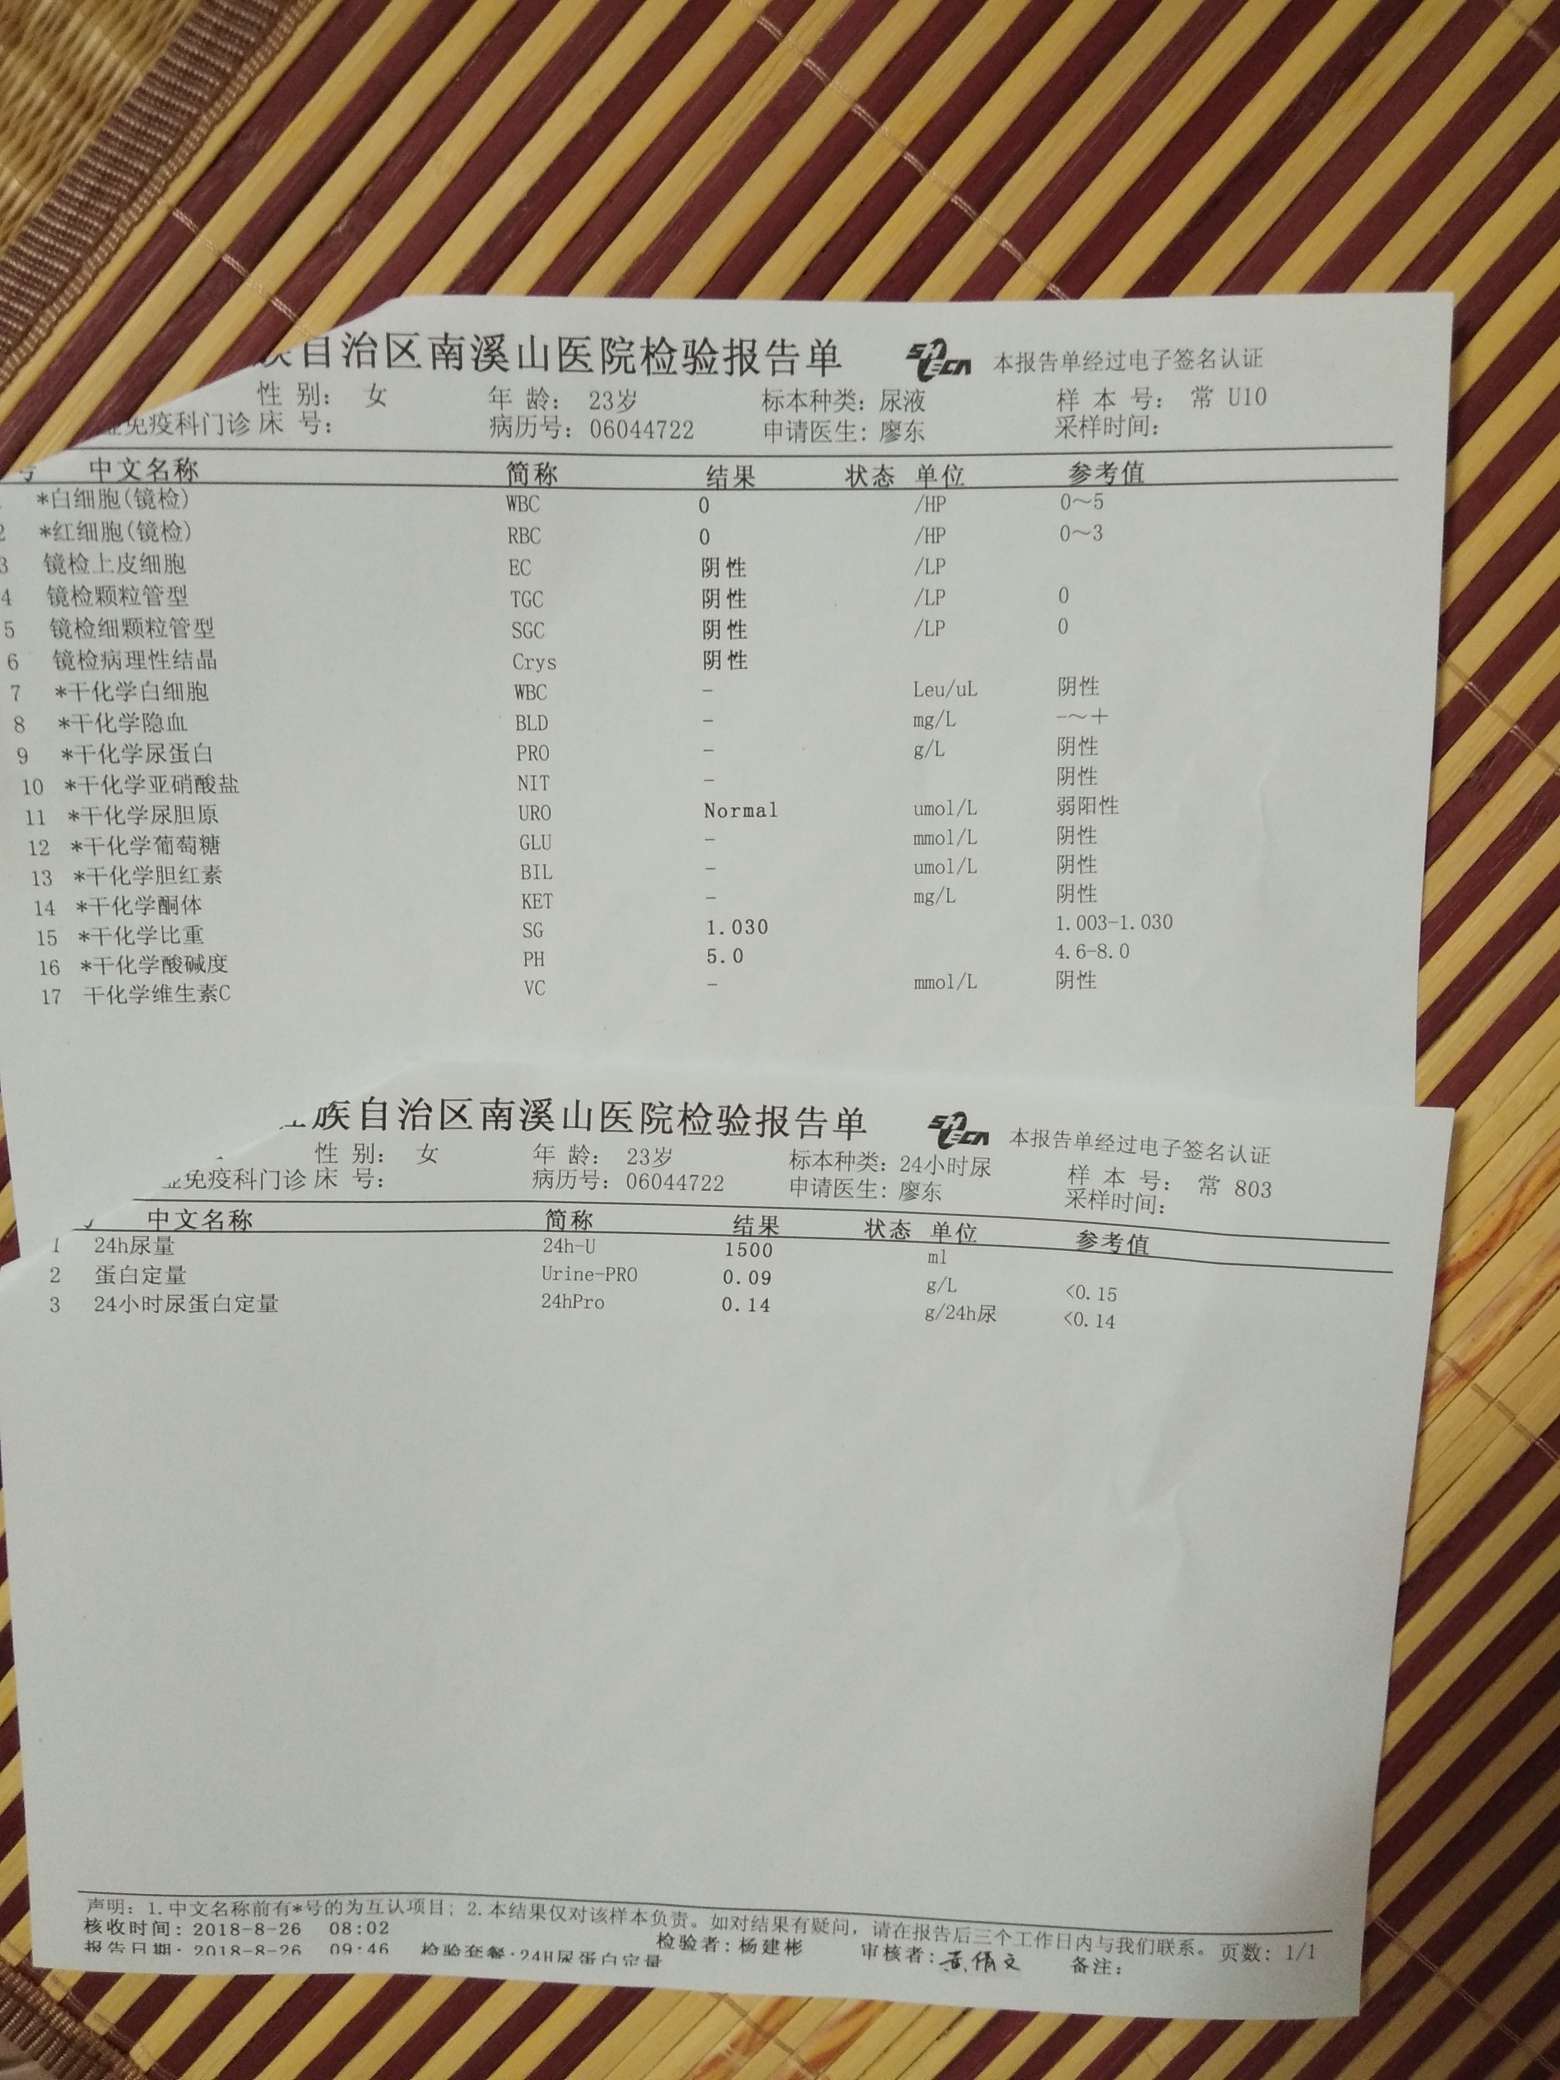 族自治区南溪山医院检验报告单 本报告单经过电子签名认证
性 别： 女 年 龄： 23岁 标本种类：尿液 样 本 号： 常 U10
免疫科门诊 床 号： 病历号：06044722 申请医生：廖东 采样时间：
号 中文名称 简称 结果 状态 单位 参考值
*白细胞(镜检) WBC 0 /HP 0～5
2 *红细胞(镜检) RBC 0 /HP 0～3
3 镜检上皮细胞 EC 阴性 /LP
4 镜检颗粒管型 TGC 阴性 /LP 0
5 镜检细颗粒管型 SGC 阴性 /LP 0
6 镜检病理性结晶 Crys 阴性
7 *干化学白细胞 WBC - Leu/uL 阴性
8 *干化学隐血 BLD - mg/L -～＋
9 *干化学尿蛋白 PRO - g/L 阴性
10 *干化学亚硝酸盐 NIT - 阴性
11 *干化学尿胆原 URO Normal umol/L 弱阳性
12 *干化学葡萄糖 GLU - mmol/L 阴性
13 *干化学胆红素 BIL - umol/L 阴性
14 *干化学酮体 KET - mg/L 阴性
15 *干化学比重 SG 1.030 1.003-1.030
16 *干化学酸碱度 PH 5.0 4.6-8.0
17 干化学维生素C VC - mmol/L 阴性
族自治区南溪山医院检验报告单 本报告单经过电子签名认证
性 别： 女 年 龄： 23岁 标本种类：24小时尿 样 本 号： 常 803
免疫科门诊 床 号： 病历号：06044722 申请医生：廖东 采样时间：
中文名称 简称 结果 状态 单位 参考值
1 24h尿量 24h-U 1500 ml
2 蛋白定量 Urine-PRO 0.09 g/L <0.15
3 24小时尿蛋白定量 24hPro 0.14 g/24h尿 <0.14
声明：1.中文名称前有*号的为互认项目；2.本结果仅对该样本负责。如对结果有疑问，请在报告后三个工作日内与我们联系。 页数：1/1
核收时间：2018-8-26 08:02 检验者：杨建彬 审核者：黄倩文 备注：
报告日期：2018-8-26 09:46 检验套餐：24H尿蛋白定量